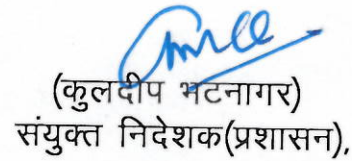 (कुलदीप भटनागर)
संयुक्त निदेशक(प्रशासन),